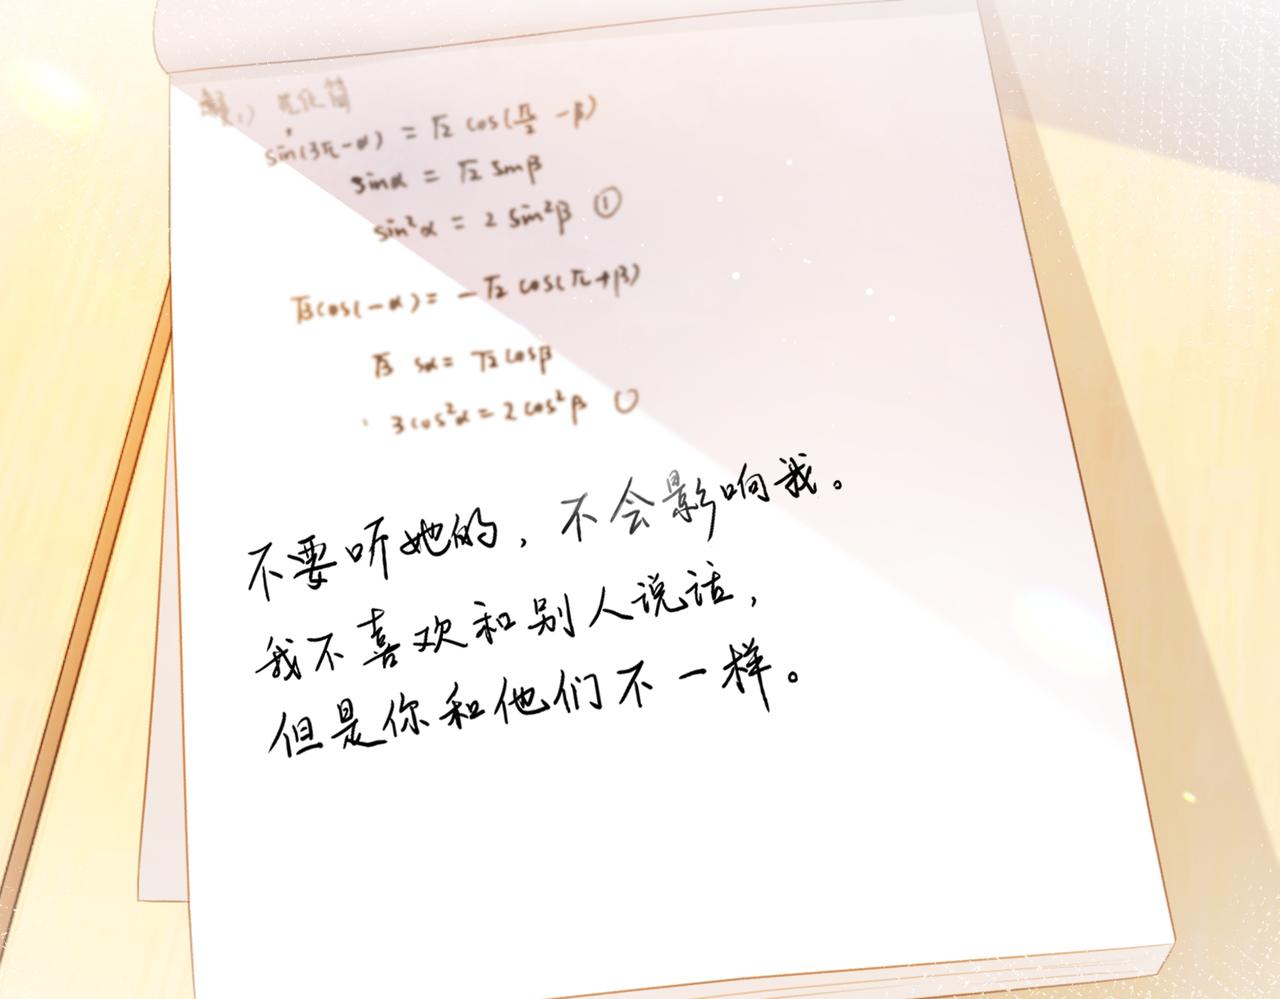 sin(3π-α) = √2 cos(π/2 -β)
sinα = √2 sinβ
sin²α = 2 sin²β ①
√3cos(-α)= -√2 cos(π+β)
√3 sα= √2cosβ
3cos²α=2cos²β
不要听她的，不会影响我。
我不喜欢和别人说话，
但是你和他们不一样。